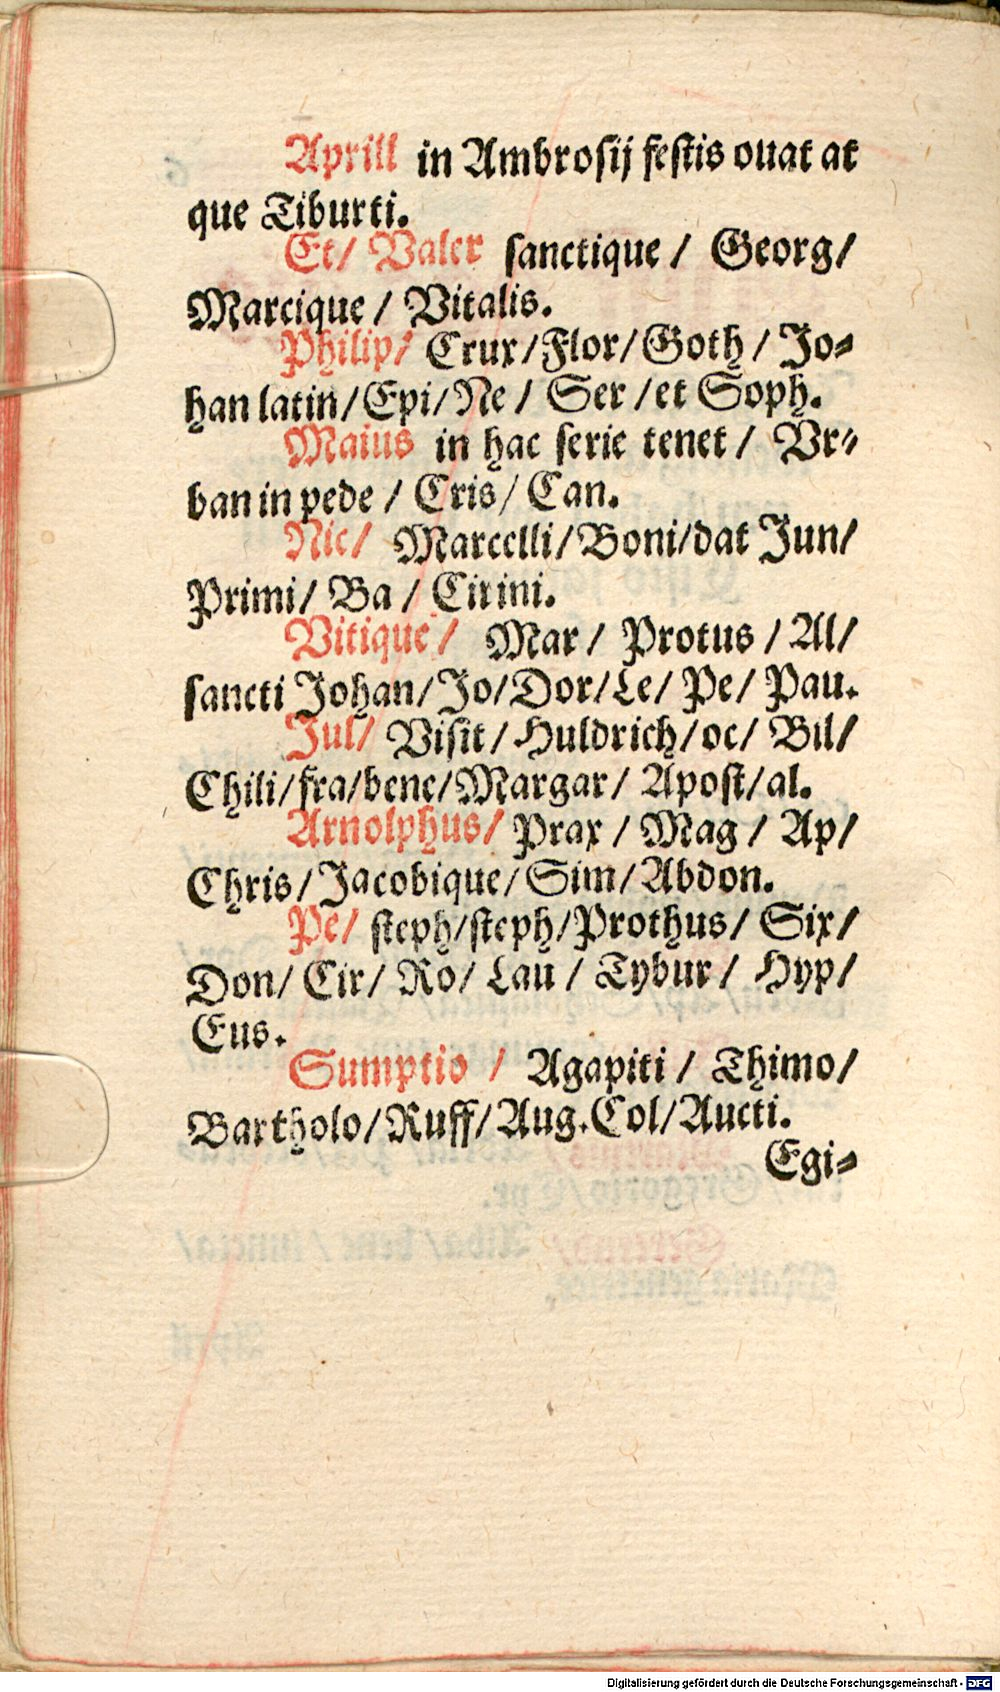 Aprill in Ambrosij festis ouat at
que Tiburti.
Et/ Valer sanctique / Georg/
Marcique / Vitalis.
Philip/ Crux/Flor/Goth / Jo⸗
han latin/Epi/Ne / Ser /et Soph.
Maius in hac serie tenet / Vr⸗
ban in pede / Cris/ Can.
Nic/ Marcelli/Boni/dat Jun/
Primi/ Ba / Cirini.
Vitique/ Mar/ Protus / Al/
sancti Johan/Jo/Dor/Le/ Pe/ Pau.
Jul/ Visit/Huldrich/oc/ Bil/
Chili/fra/bene/Margar/ Apost/al.
Arnolphus/ Prax / Mag / Ap/
Chris/Jacobique/Sim/Abdon.
Pe/ steph/steph/Prothus/ Six/
Don/ Cir/ Ro/ Lau / Tybur/ Hyp/
Eus.
Sumptio / Agapiti / Thimo/
Bartholo/Ruff/Aug.Col/Aucti.
Egi⸗
Digitalisierung gefördert durch die Deutsche Forschungsgemeinschaft - DFG